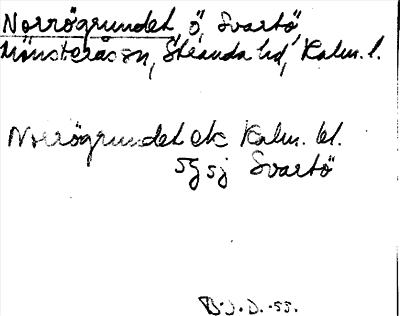 Norrögrundet, ö, Svartö,
Mönsterås sn, Stranda hd, Kalm. l.
Norrögrundet ek Kalm. bl.
5g sj Svartö
B.J.D. -55.